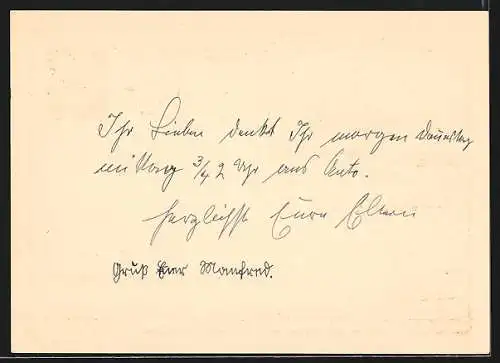 Ihr Lieben denkt Ihr morgen Donnerstag
mittag 3/4 2 Uhr ans Auto.
herzlichst Eure Eltern
Gruß Euer Manfred.